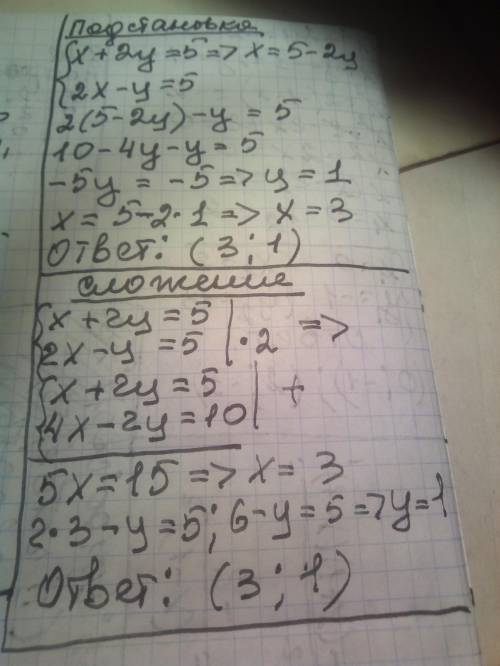 Подстановка
{x + 2y = 5 => x = 5 - 2y
{2x - y = 5
2(5 - 2y) - y = 5
10 - 4y - y = 5
-5y = -5 => y = 1
x = 5 - 2·1 => x = 3
Ответ: (3; 1)
сложение
{x + 2y = 5
2x - y = 5 | ·2 =>
{x + 2y = 5 | +
4x - 2y = 10
5x = 15 => x = 3
2·3 - y = 5; 6 - y = 5 => y = 1
Ответ: (3; 1)